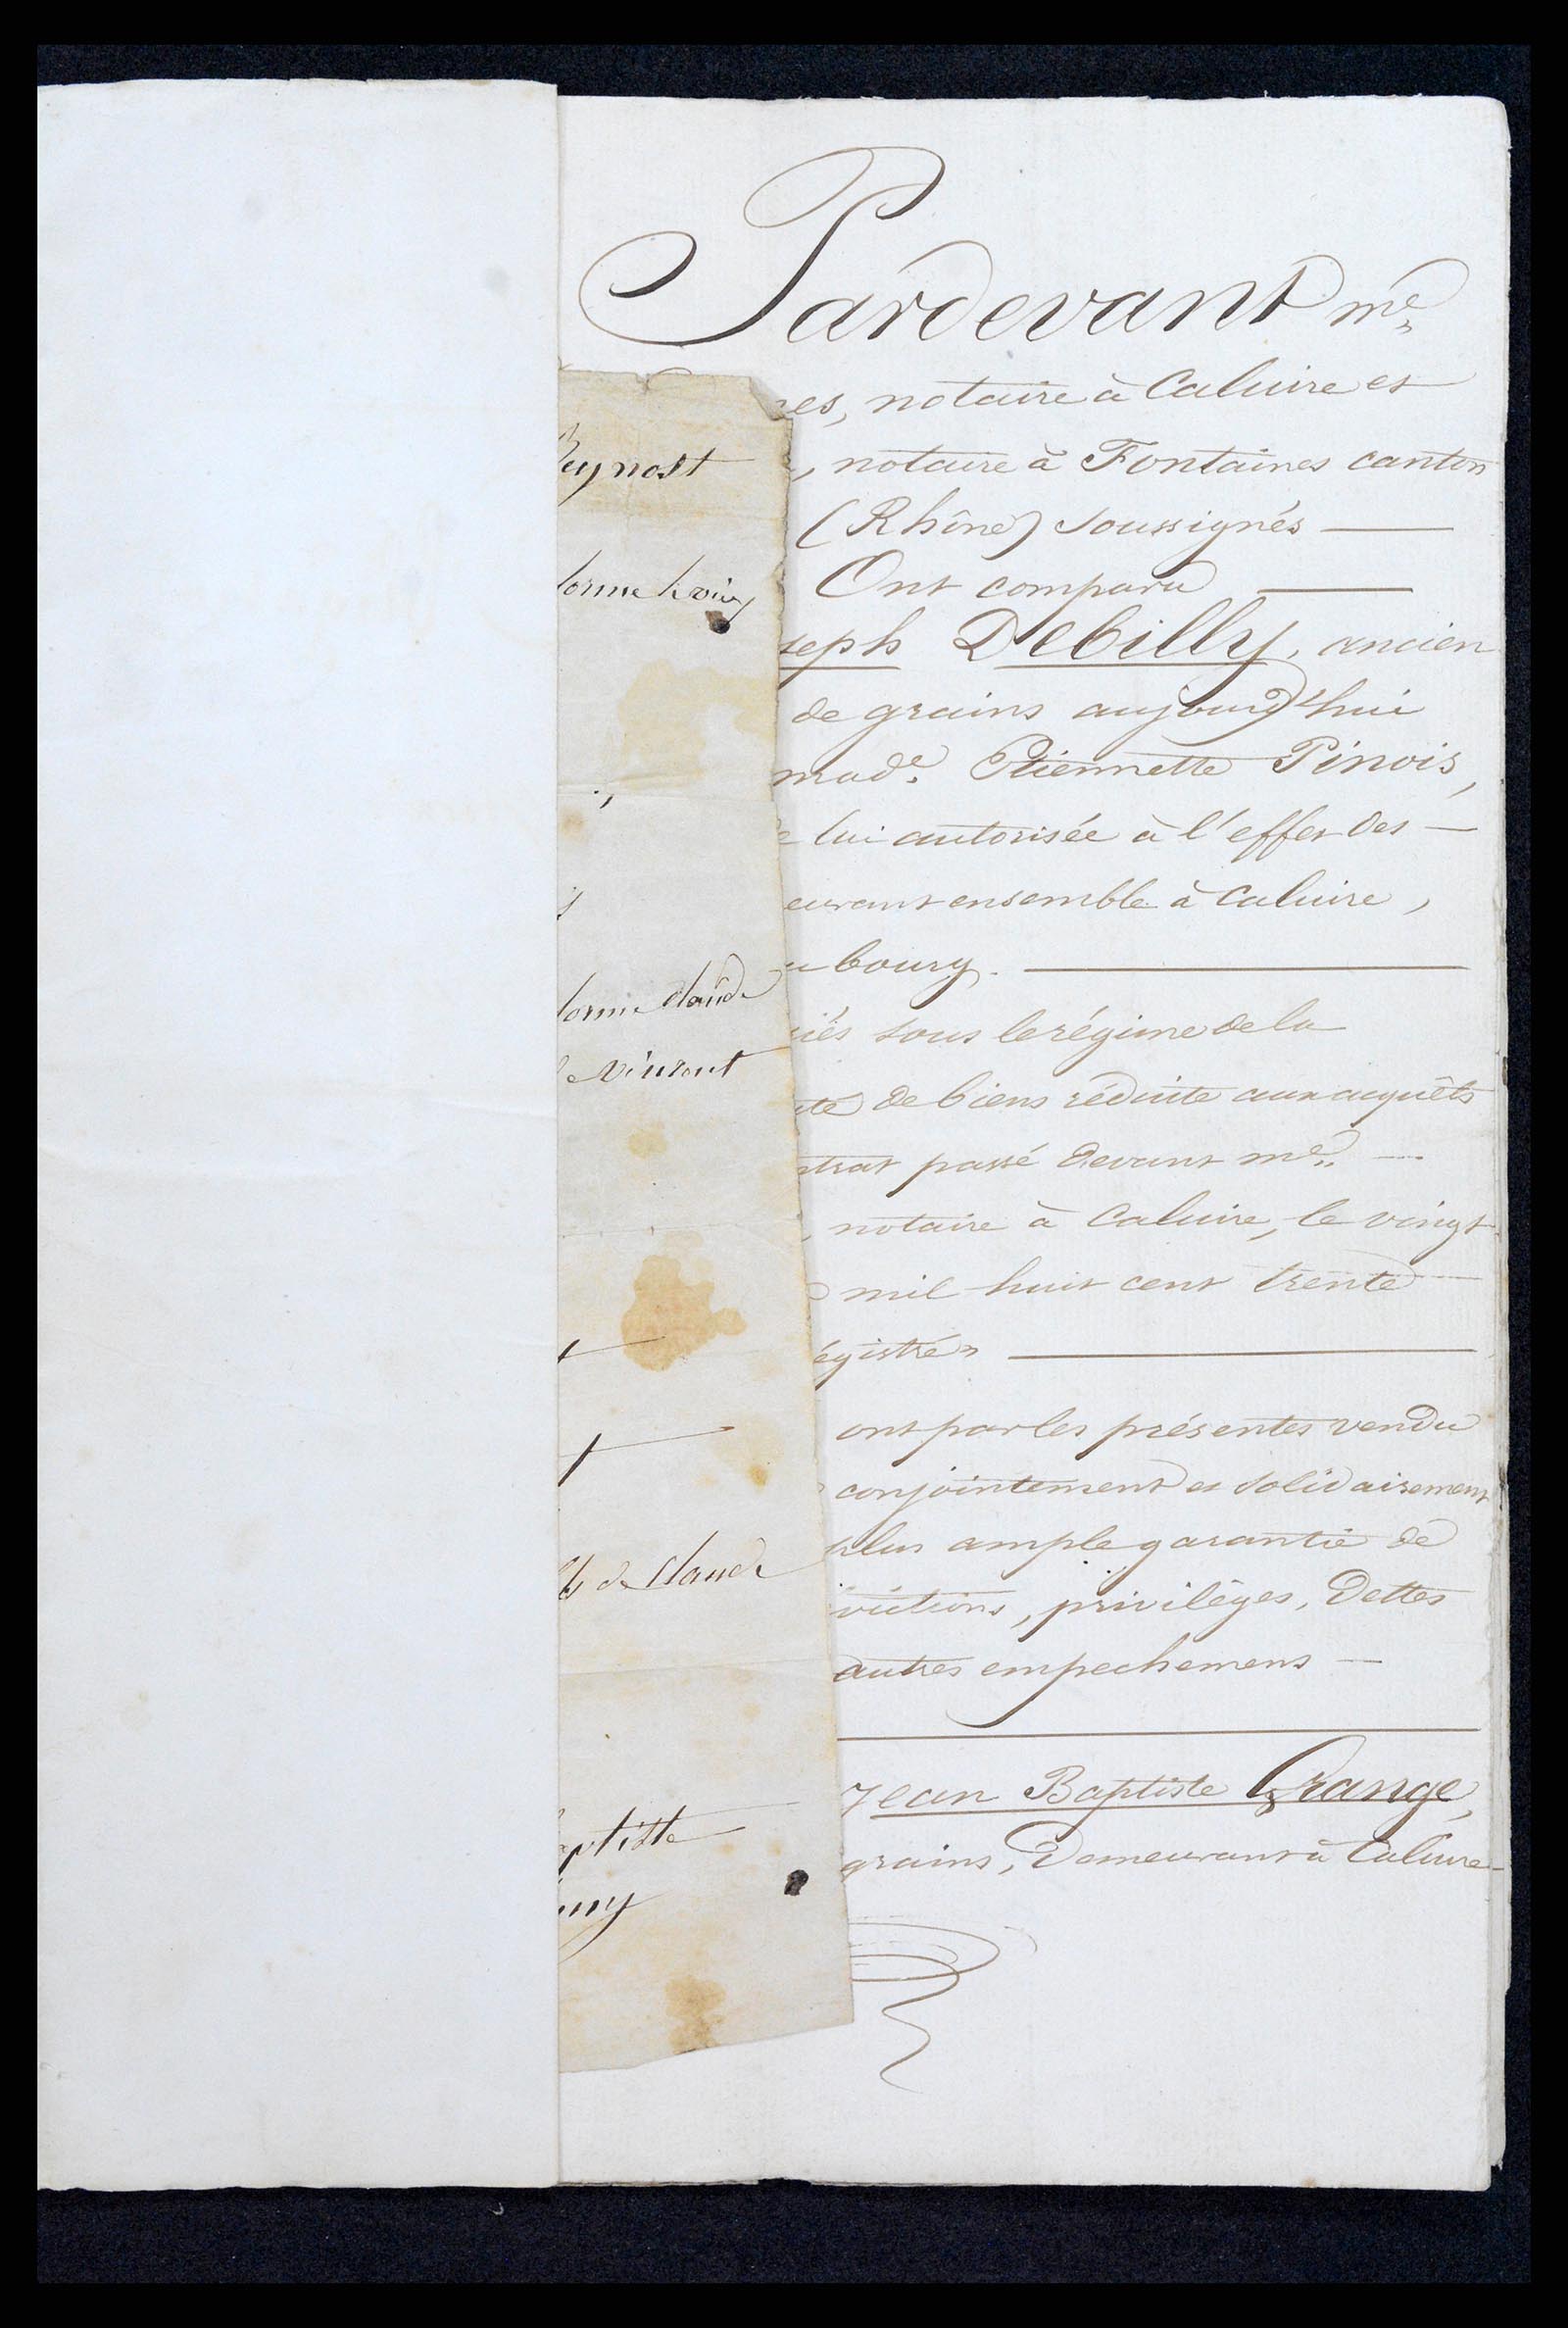 Pardevant me
es, notaire à Caluire et
, notaire à Fontaines canton
(Rhône) soussignés
Ont comparu
seph Debilly, ancien
de grains aujourd'hui
made. Etiennette Pinois,
lui autorisée à l'effet des
eurant ensemble à Caluire,
bourg.
iés sous le régime de la
té de biens réduite aux acquêts
ntrat passé devant me.
, notaire à Caluire, le vingt
mil huit cent trente
égistré
ont par les présentes vendu
conjointement et solidairement
plus ample garantie de
victions, privilèges, dettes
autres empechemens
Jean Baptiste Grange,
grains, demeurant à Caluire
eynost
lorme
lorme claude
vincent
t
t
de claude
aptiste
ny